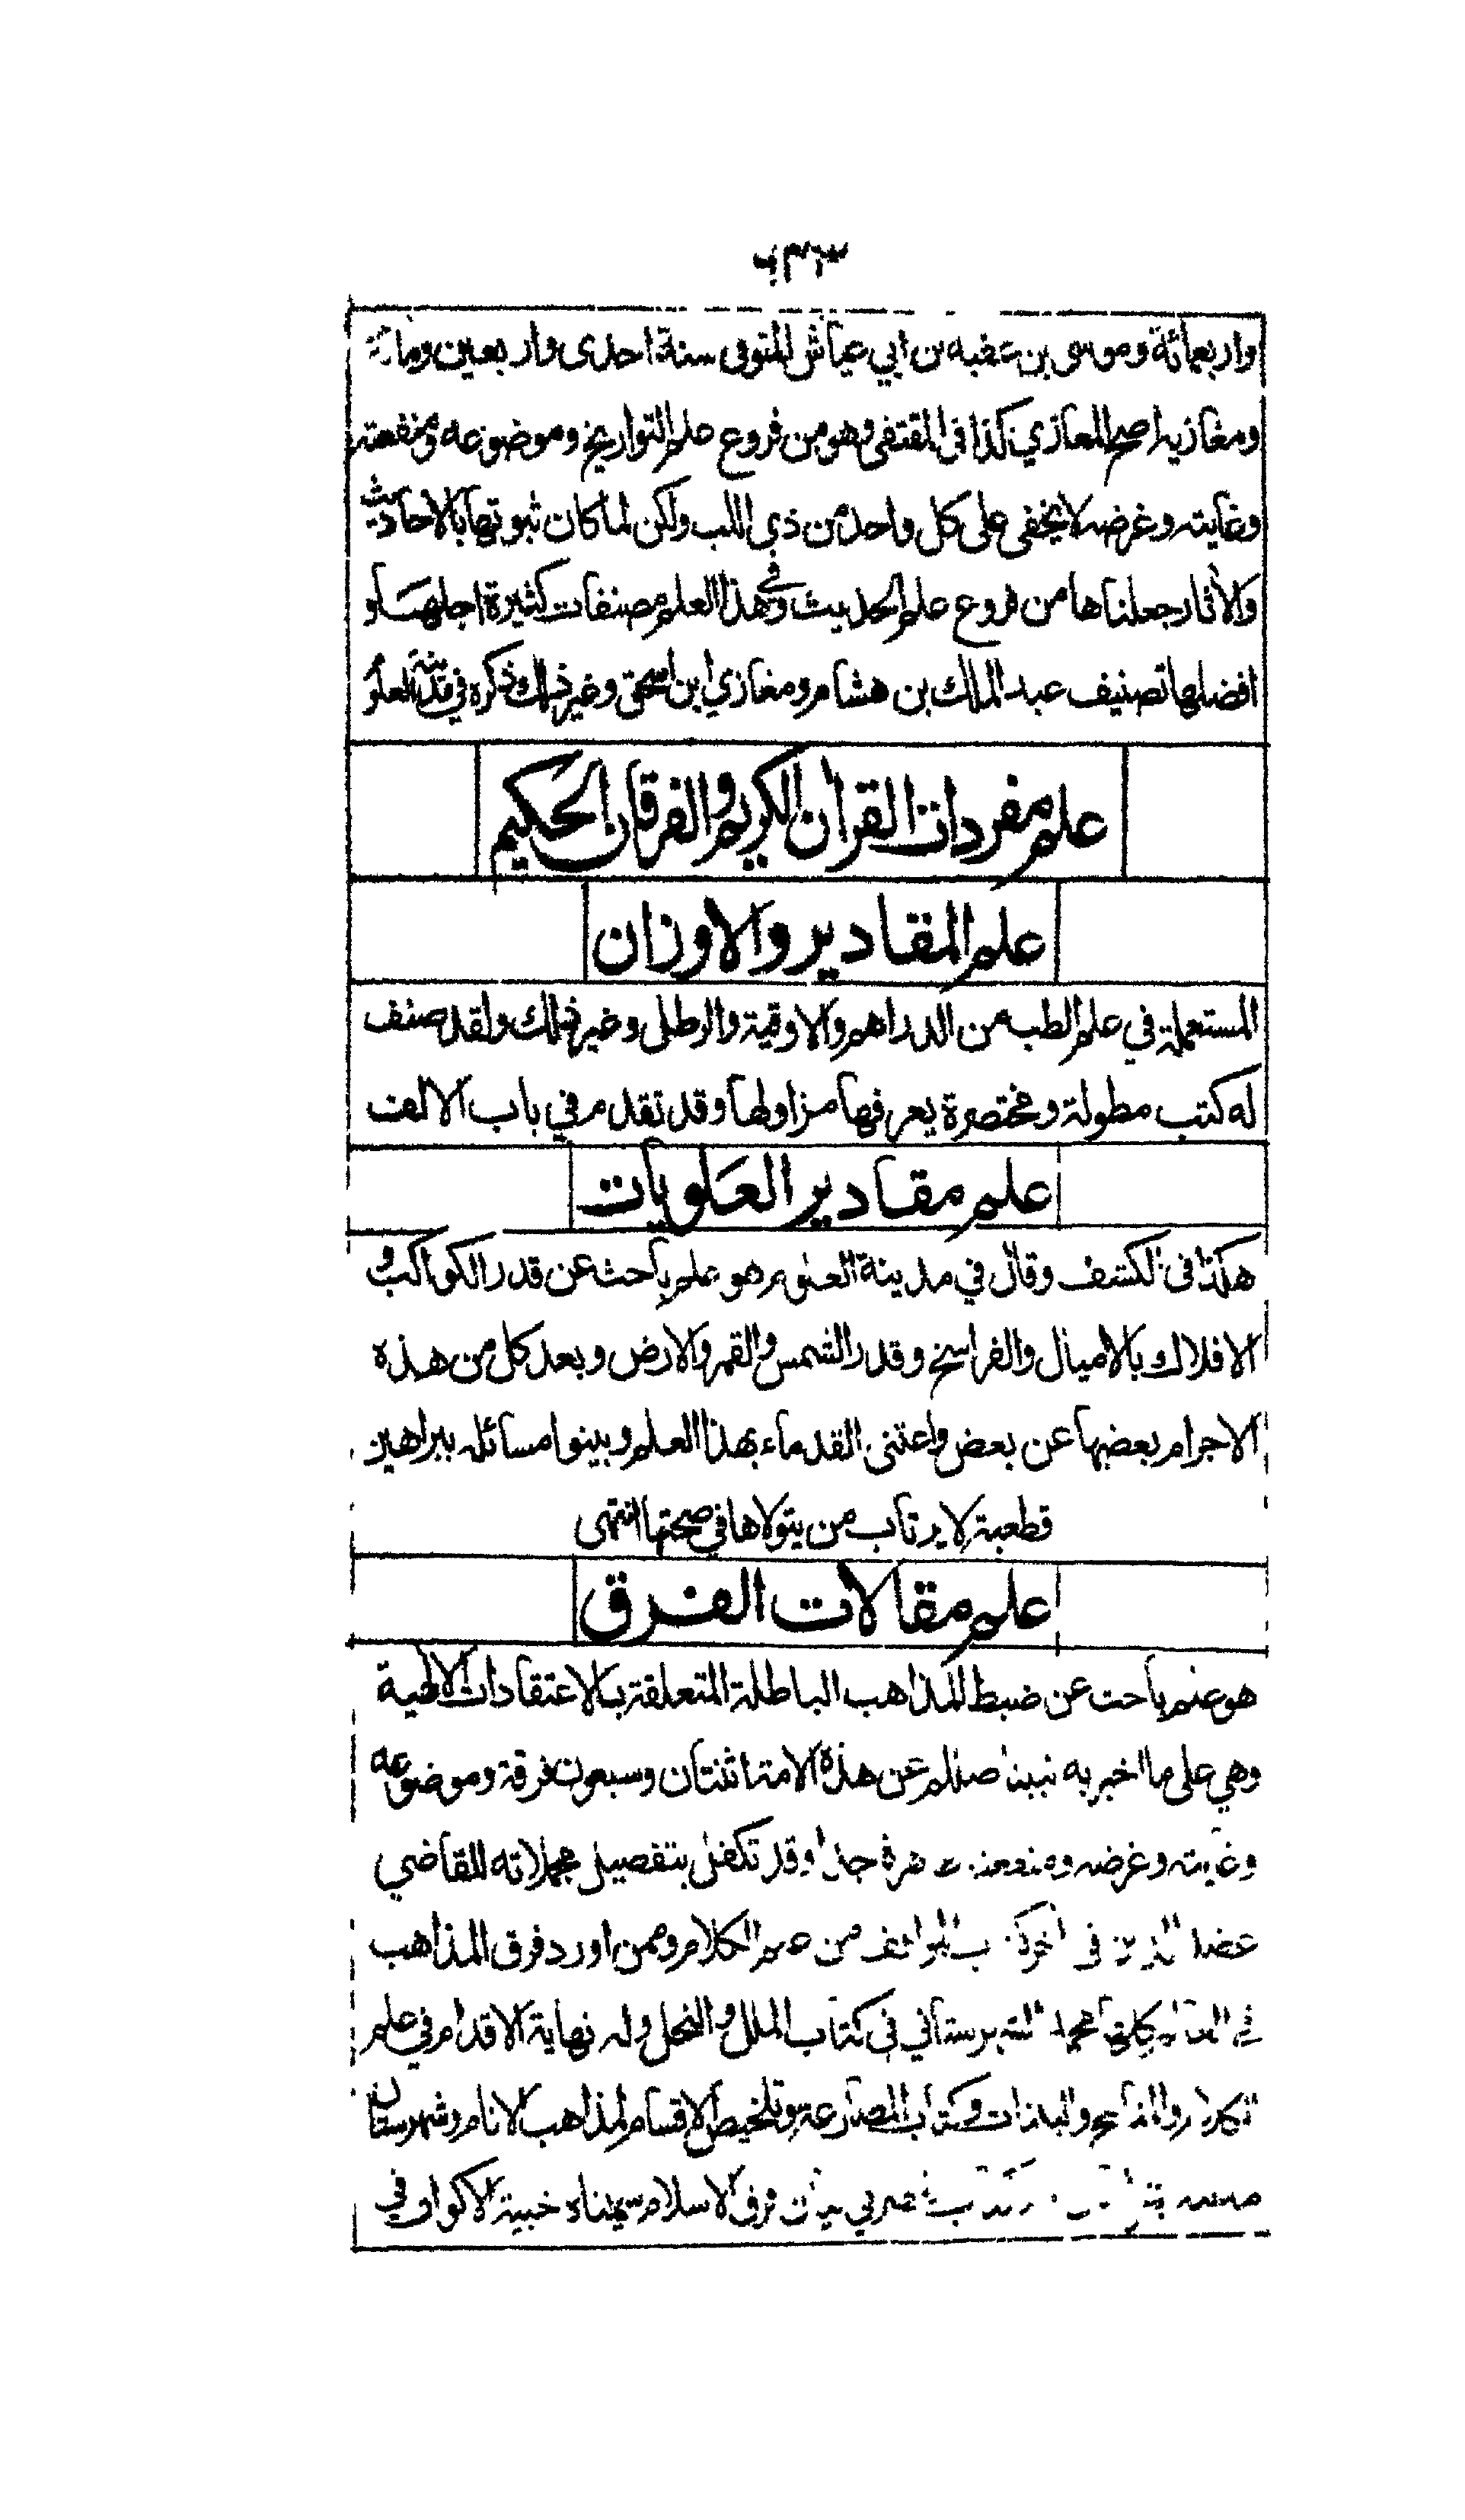 واربعمائة وموسى بن عقبه بن ابي عياش المتوفى سنة احدى واربعين ومائة
ومغازيه اصح المغازي كذا في المقتفى وهو من فروع علم التواريخ وموضوعه ومنفعته
وغايته وغرضه لا يخفى على كل واحد من ذي اللب ولكن لما كان ثبوتها بالاحاديث
والآثار جعلناها من فروع علم الحديث وفي هذا العلم مصنفات كثيرة اجلها و
افضلها تصنيف عبد الملك بن هشام ومغازي ابن اسحق وغير ذلك وذكره في مدينة العلوم
علم مفردات القران الكريم والفرقان الحكيم
علم المقادير والاوزان
المستعملة في علم الطب من الدراهم والاوقية والرطل وغير ذلك ولقد صنف
له كتب مطولة ومختصرة يعرفها مزاولها وقد تقدم في باب الالف
علم مقادير العلويات
هكذا في الكشف وقال في مدينة العلوم هو علم باحث عن قدر الكواكب و
الافلاك بالاميال والفراسخ وقدر الشمس والقمر والارض وبعد كل من هذه
الاجرام بعضها عن بعض واعتنى القدماء بهذا العلم وبينوا مسائله ببراهين
قطعية لا يرتاب من يتولاها في صحتها انتهى
علم مقالات الفرق
هو علم باحث عن ضبط المذاهب الباطلة المتعلقة بالاعتقادات الالهية
وهي على ما اخبر به نبينا صللم عن هذة الامة اثنتان وسبعون فرقة وموضوعه
وغايته وغرضه ومنفعته ظاهرة جدا وقد تكفل بتفصيل مجملاته القاضي
عضد الدين في اخر كتاب المواقف من علم الكلام وممن اورد فرق المذاهب
في محمد الشهرستاني في كتاب الملل والنحل وله نهاية الاقدام في علم
الكلام والمناهج والبينات وكتاب المضارعة وتلخيص الاقسام لمذاهب الانام وشهرستان
كتاب عربي بيان فرق الاسلام سميناه خبيئة الاكوان في